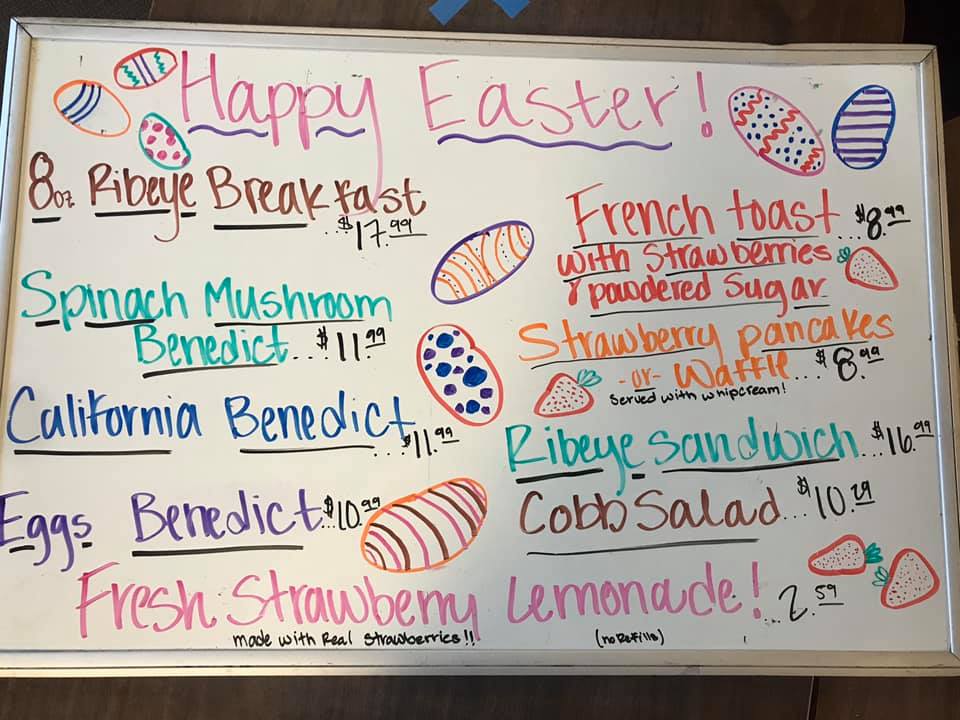 Happy Easter!
8oz Ribeye Breakfast
...$17.99
Spinach Mushroom
Benedict...$11.99
California Benedict
..$11.99
Eggs Benedict..$10.99
French toast..$8.99
with Strawberries
& powdered Sugar
Strawberry pancakes
-or- Waffle...$8.99
Served with whipcream!
Ribeye Sandwich..$16.99
Cobb Salad...$10.29
Fresh Strawberry Lemonade!...2.59
made with Real Strawberries!! (no Refills)